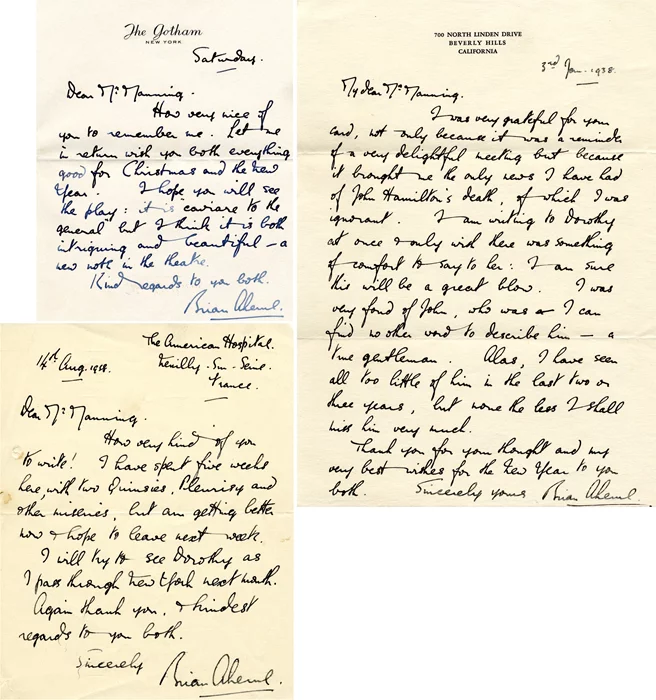 The Gotham
NEW YORK
Saturday.
Dear Mr Manning.
How very nice of
you to remember me. Let me
in return wish you both everything
good for Christmas and the New
Year. I hope you will see
the play: it is caviare to the
general but I think it is both
intriguing and beautiful – a
new note in the theatre.
Kind regards to you both.
Brian Aherne.
The American Hospital.
Neuilly-Sur-Seine.
France.
14th Aug. 1938.
Dear Mr Manning.
How very kind of you
to write! I have spent five weeks
here, with two Quinsies, Pleurisy and
other miseries, but am getting better
now & hope to leave next week.
I will try to see Dorothy as
I pass through New York next month.
Again thank you, & kindest
regards to you both.
Sincerely
Brian Aherne.
700 NORTH LINDEN DRIVE
BEVERLY HILLS
CALIFORNIA
3rd Jan. 1938.
My dear Mr Manning.
I was very grateful for your
card, not only because it was a reminder
of a very delightful meeting but because
it brought me the only news I have had
of John Hamilton's death, of which I was
ignorant. I am writing to Dorothy
at once & only wish there was something
of comfort to say to her: I am sure
this will be a great blow. I was
very fond of John, who was – I can
find no other word to describe him – a
true gentleman. Alas, I have seen
all too little of him in the last two or
three years, but none the less I shall
miss him very much.
Thank you for your thought and my
very best wishes for the New Year to you
both. Sincerely yours Brian Aherne.